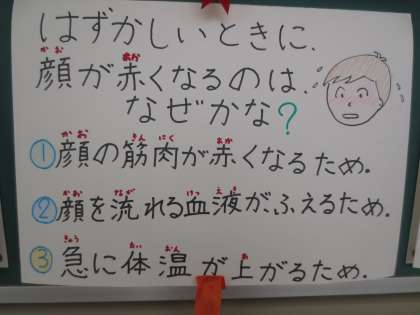 はずかしいときに、
顔が赤くなるのは、
なぜかな?
①顔の筋肉が赤くなるため。
②顔を流れる血液が、ふえるため。
③急に体温が上がるため。